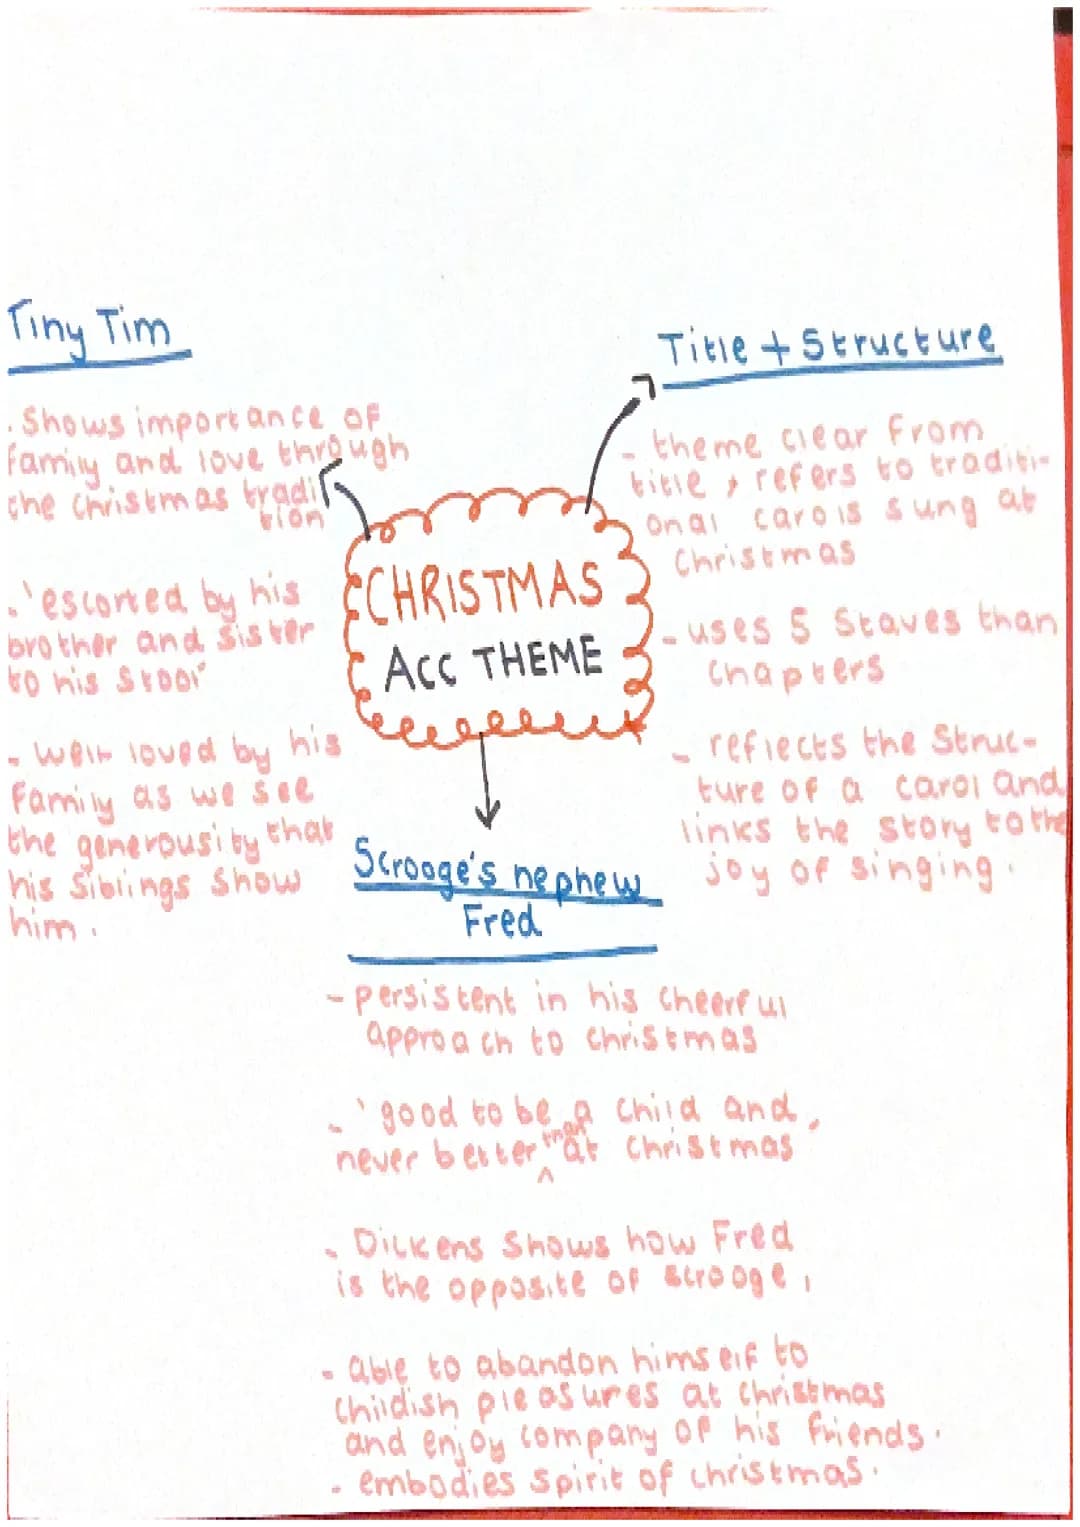 Tiny Tim
. Shows importance of
family and love through
the christmas tradi
tion
. 'escorted by his
brother and sister
to his stool'
- well loved by his
family as we see
the generousity that
his siblings show
him.
CHRISTMAS
ACC THEME
Title + Structure
- theme clear from
title, refers to traditi-
onal carols sung at
Christmas
- uses 5 Staves than
Chapters
- reflects the Struc-
ture of a carol and
links the story to the
joy of singing.
Scrooge's nephew
Fred
- persistent in his cheerful
approach to christmas
- 'good to be a child and
never better than at christmas'
- Dickens shows how Fred
is the opposite of scrooge,
- able to abandon himself to
childish pleasures at christmas
and enjoy company of his friends.
- embodies spirit of christmas.